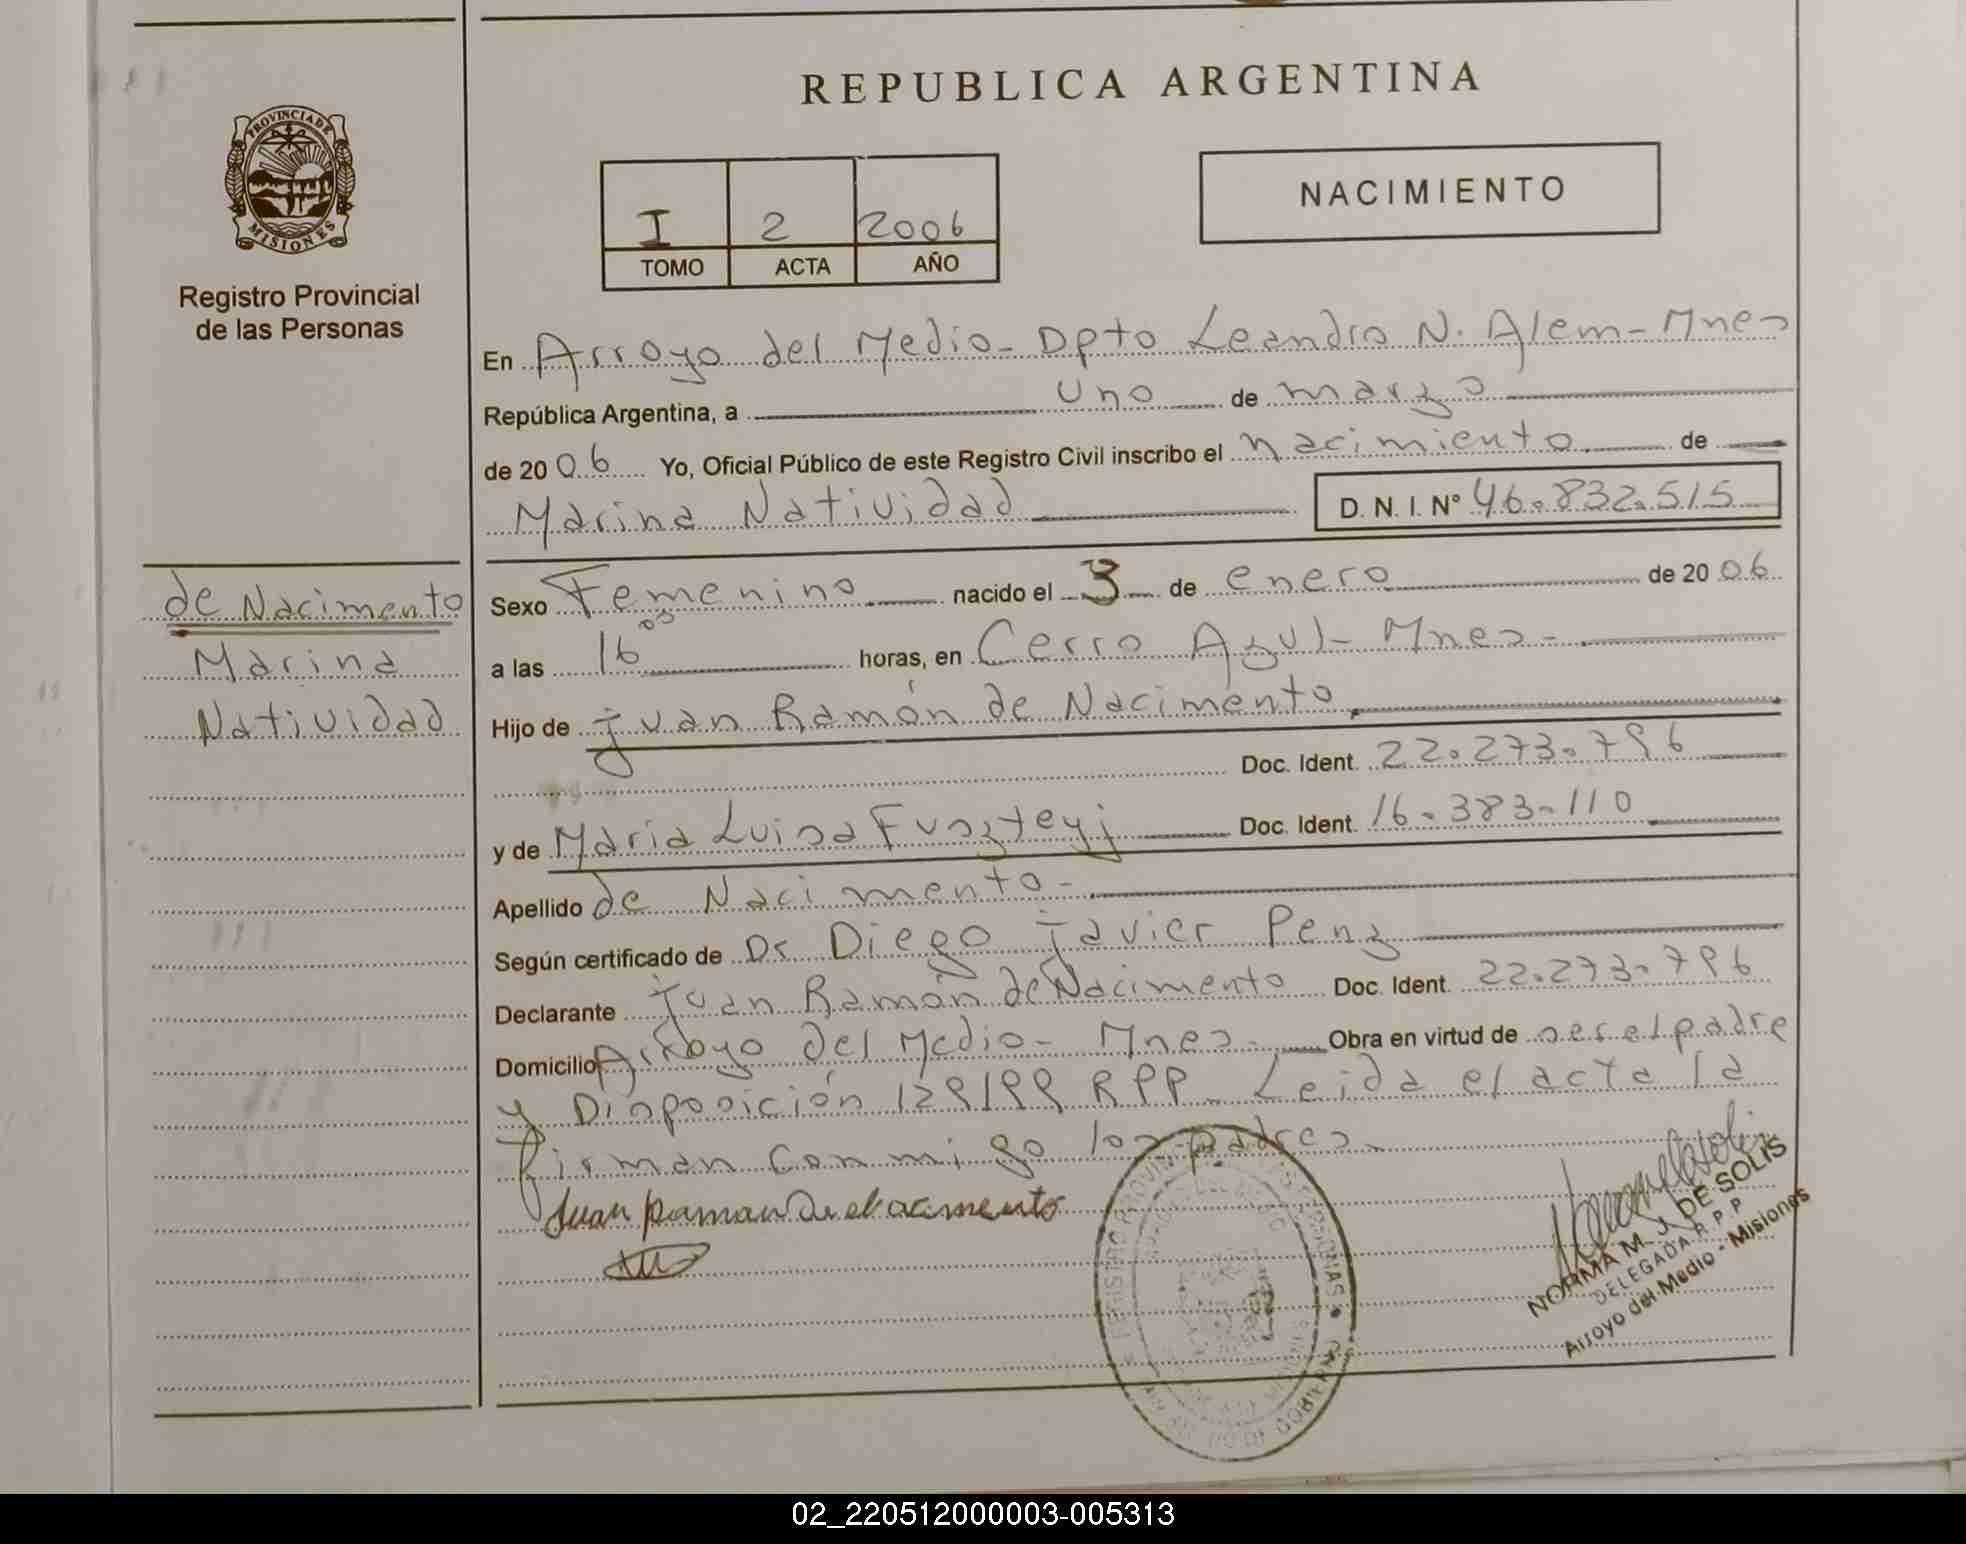 REPUBLICA ARGENTINA
PROVINCIA DE
MISIONES
Registro Provincial
de las Personas
I 2 2006
TOMO ACTA AÑO
NACIMIENTO
En Arroyo del Medio - Dpto Leandro N. Alem - Mnes
República Argentina, a uno de marzo
de 2006 Yo, Oficial Público de este Registro Civil inscribo el nacimiento de
Marina Natividad D. N. I. N° 46.832.515
de Nacimento
Marina
Natividad
Sexo Femenino nacido el 3 de enero de 2006
a las 16 05 horas, en Cerro Azul - Mnes -
Hijo de Juan Ramón de Nacimento
Doc. Ident. 22.273.796
y de Maria Luisa Fuszteyj Doc. Ident. 16.383.110
Apellido de Nacimento -
Según certificado de Dr Diego Javier Penz
Declarante Juan Ramón de Nacimento Doc. Ident. 22.273.796
Domicilio Arroyo del Medio - Mnes - Obra en virtud de ser el padre
y Disposición 129/99 RPP - Leida el acta la
firman conmigo los padres
Juan Raman De Nacimento
NORMA M. J. DE SOLIS
DELEGADA R. P. P
Arroyo del Medio - Misiones
02_220512000003-005313